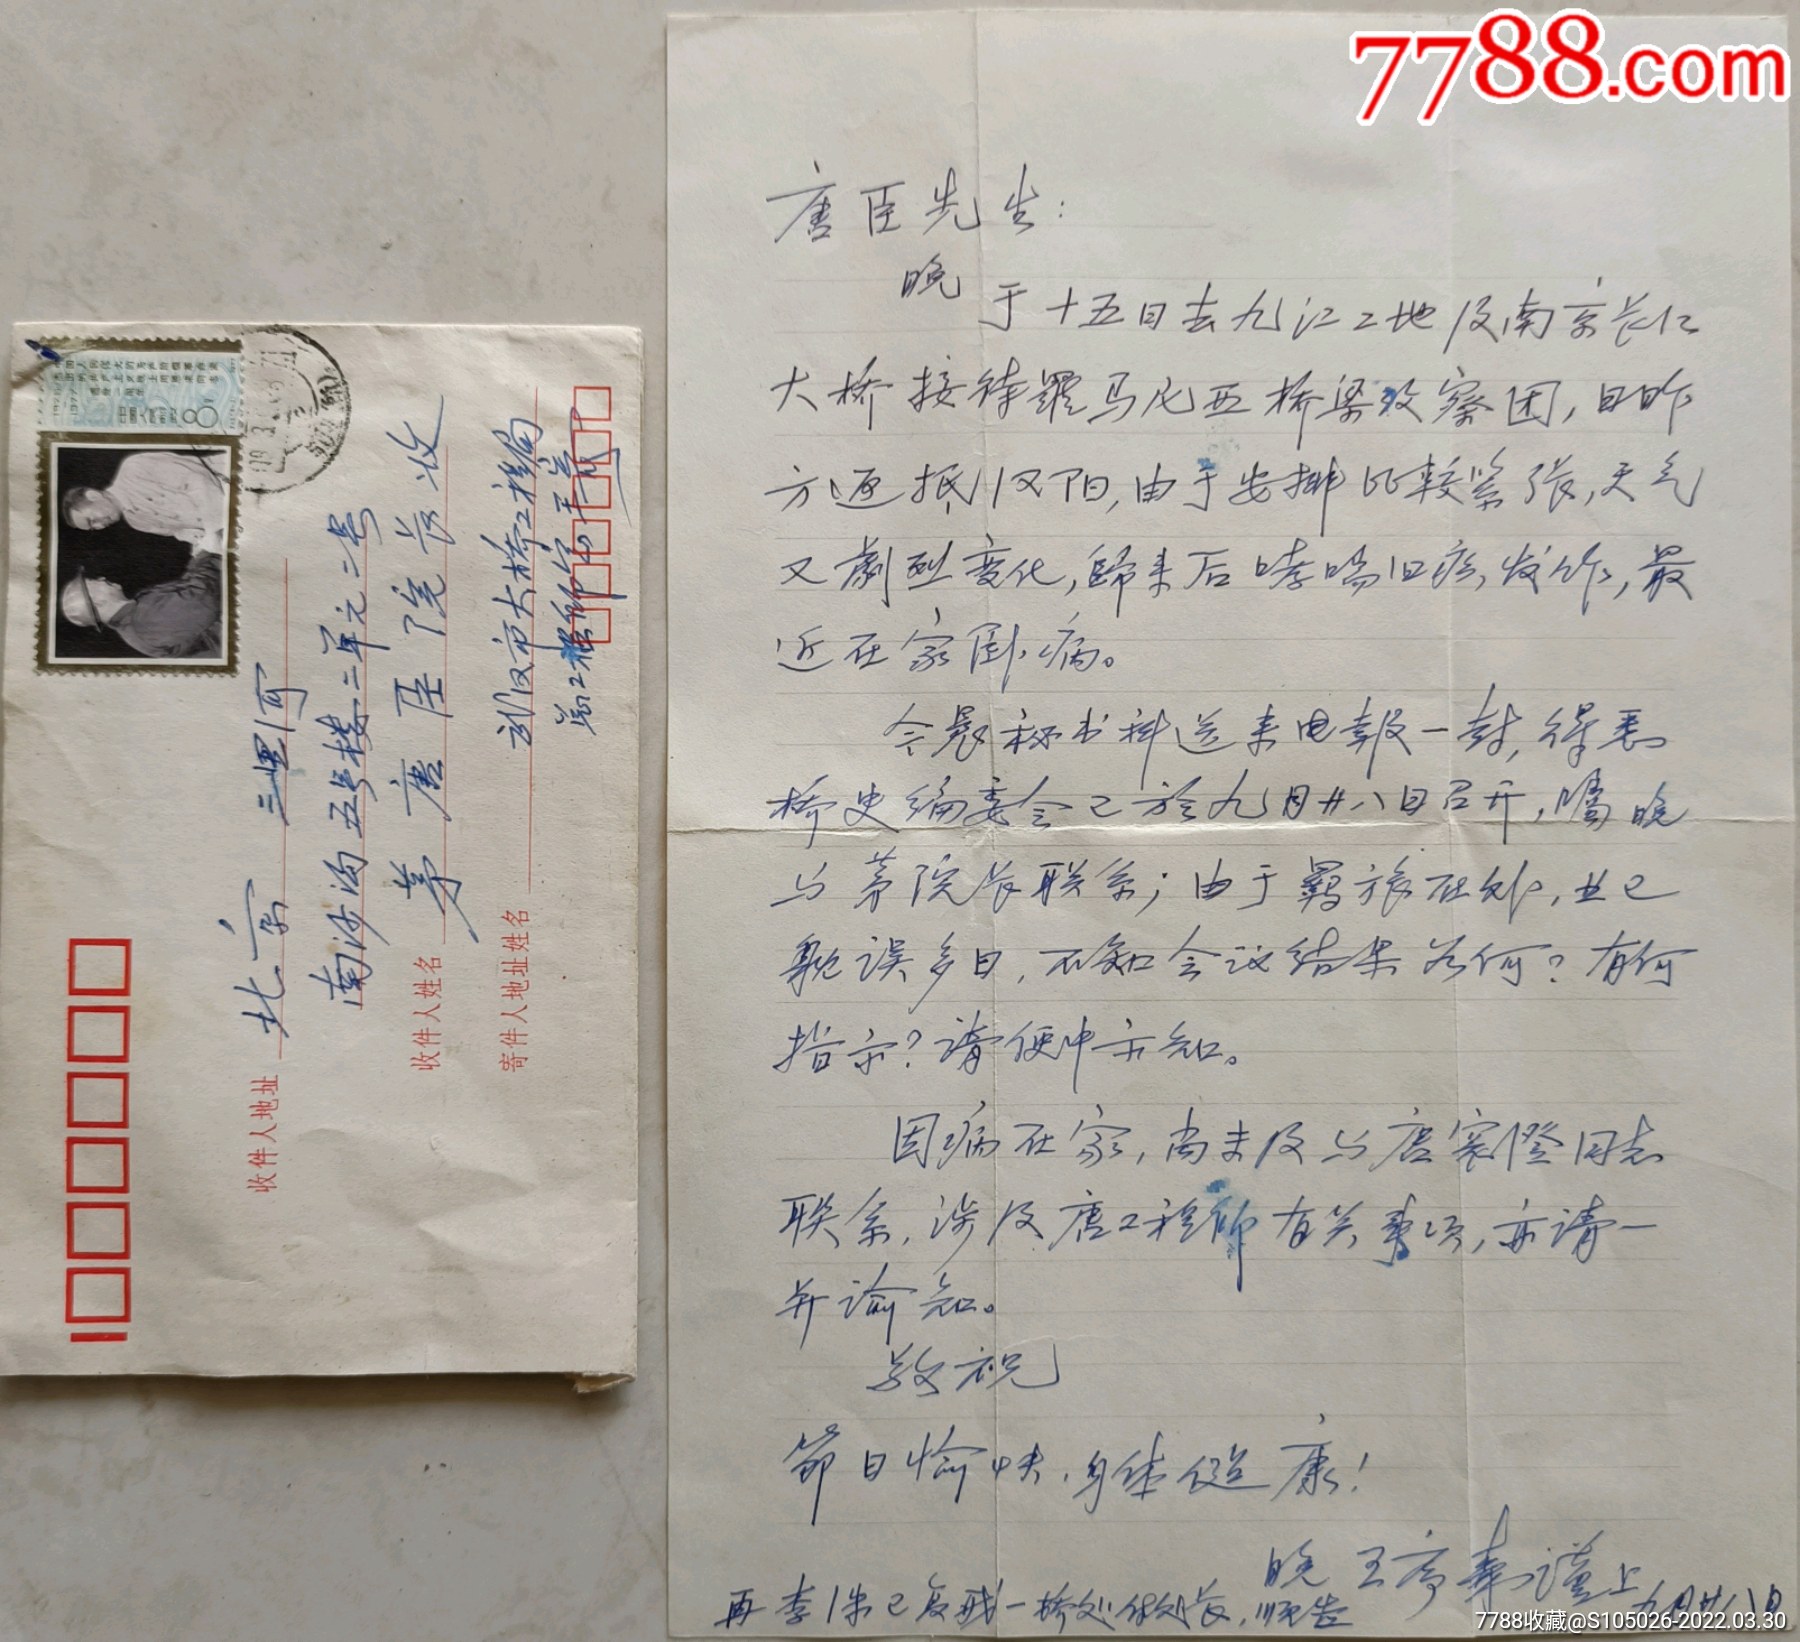 7788.com
唐臣先生：
晚于十五日去九江工地及南京长江
大桥接待罗马尼亚桥梁考察团，日昨
方返抵汉阳，由于安排比较紧张，天气
又剧烈变化，归来后哮喘旧疾发作，最
近在家卧病。
今晨秘书科送来电报一封，得悉
桥史编委会已于九月廿八日召开，嘱晚
与茅院长联系；由于羁旅在外，业已
耽误多日，不知会议结果为何？有何
指示？请便中示知。
因病在家，尚未及与唐寰澄同志
联系，涉及唐工程师有关事项，亦请一
并谕知。
敬祝
节日愉快，身体健康！
晚 王序森谨上
九月廿八日
再李 已复 一桥处 处长，顺告
收件人地址
北京 三里河
南沙沟五号楼二单元二号
收件人姓名
茅唐臣院长收
寄件人地址姓名
武汉市大桥工程局
总工程师室 王
7788收藏@S105026-2022.03.30